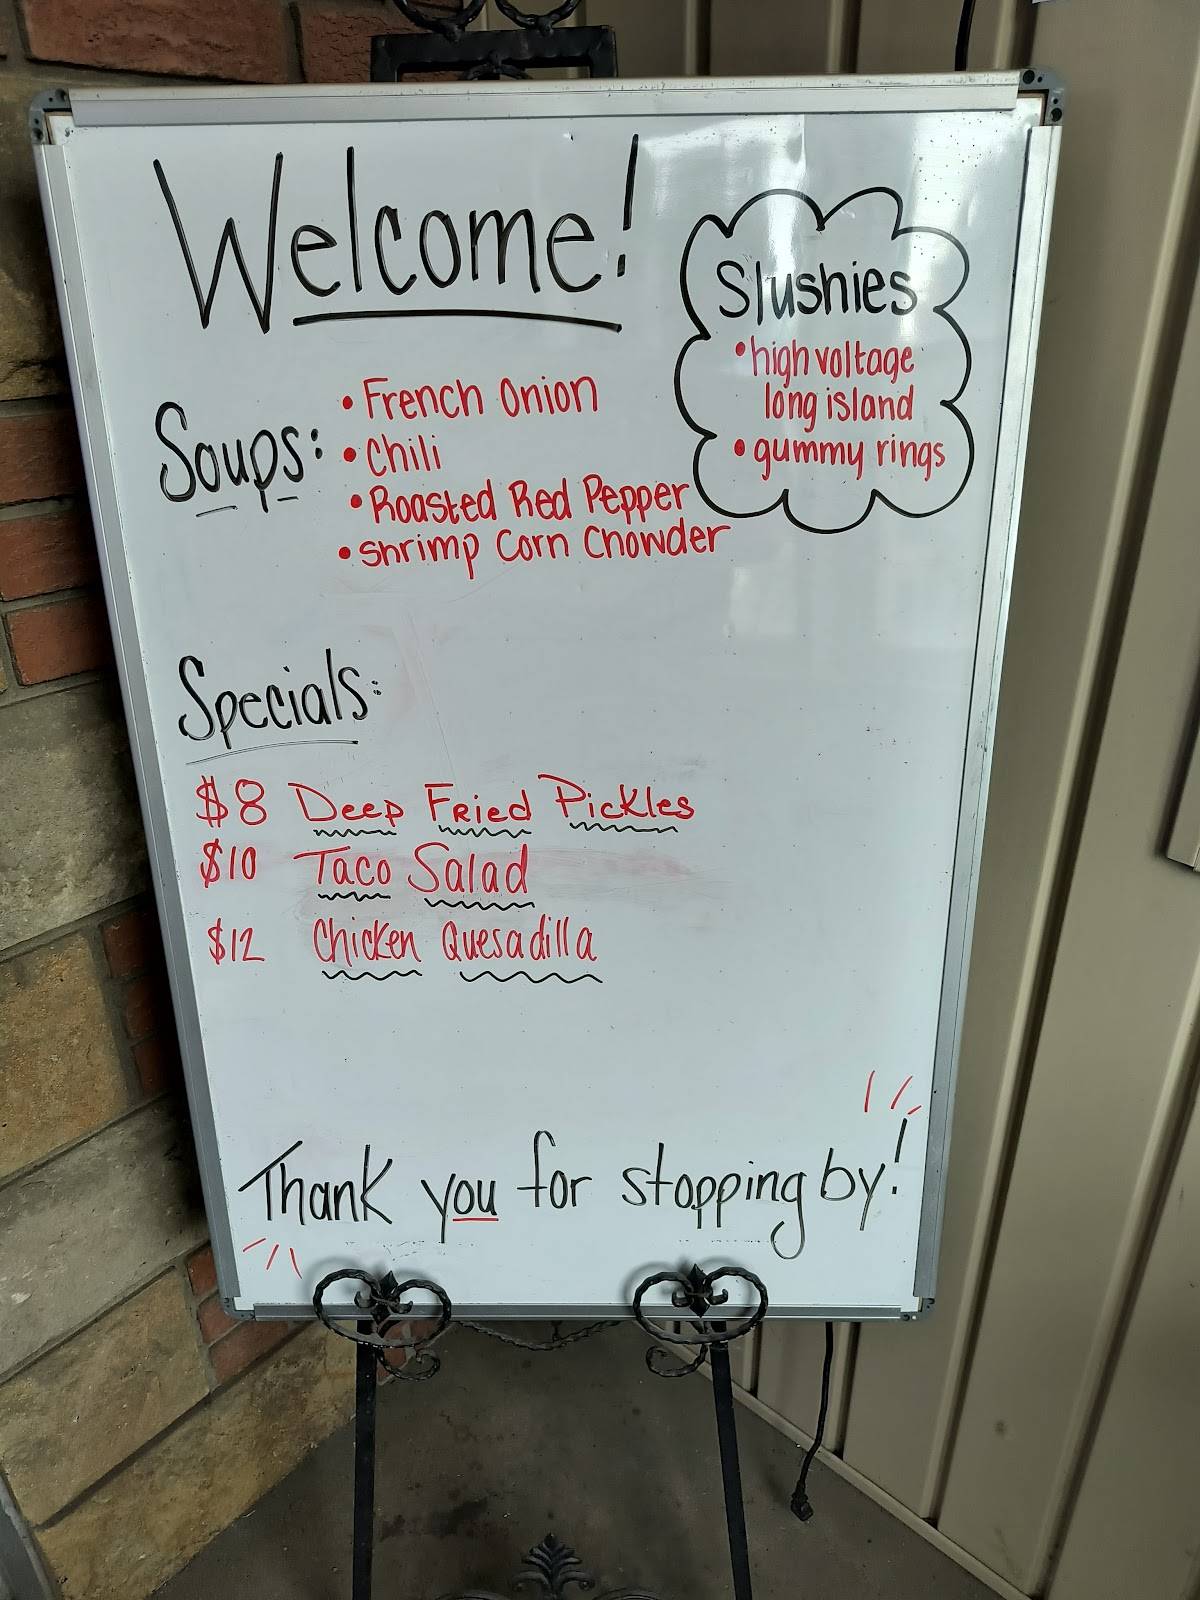 Welcome!
Slushies
• high voltage
long island
• gummy rings
Soups:
• French Onion
• Chili
• Roasted Red Pepper
• Shrimp Corn Chowder
Specials:
$8 Deep Fried Pickles
$10 Taco Salad
$12 Chicken Quesadilla
Thank you for stopping by!